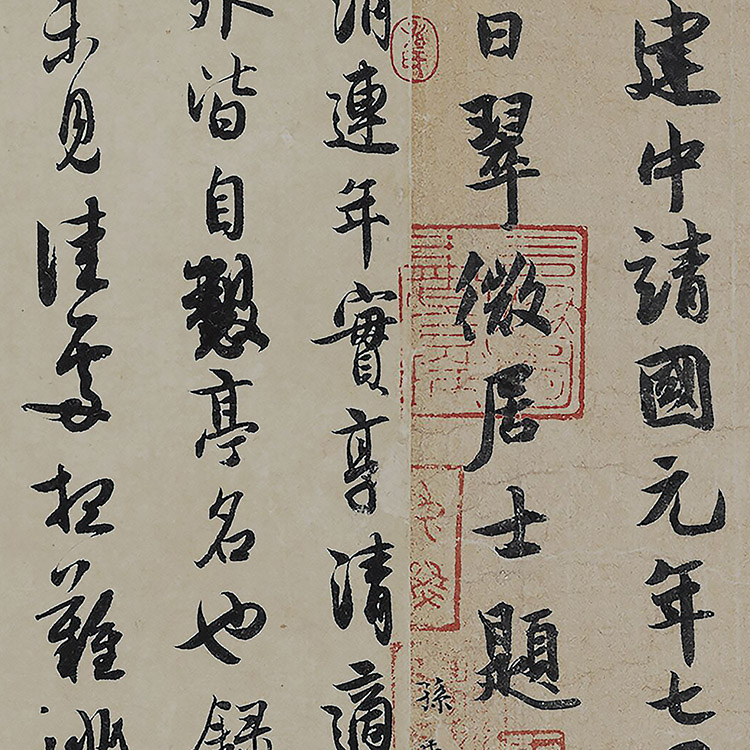 建中靖國元年七
日翠微居士題
孫
連年實享清適
皆自製亭名也録
未見佳處想難